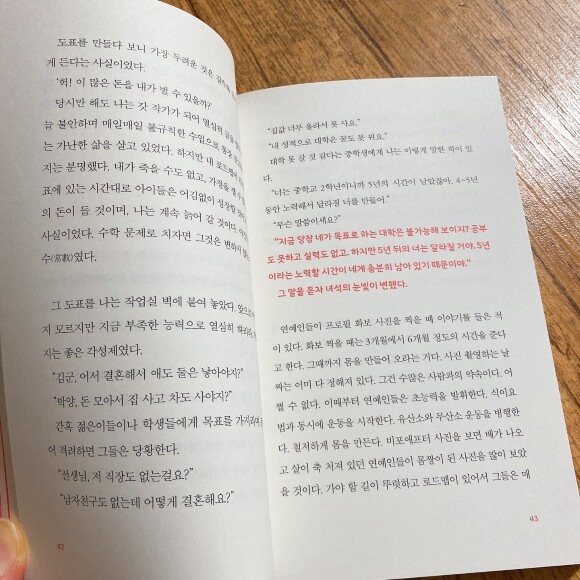 도표를 만들다 보니 가장 두려운 것은
게 든다는 사실이었다.
'헉! 이 많은 돈을 내가 벌 수 있을까?'
당시만 해도 나는 갓 작가가 되어 열심히
늘 불안하며 매일매일 불규칙한 수입으로
는 가난한 삶을 살고 있었다. 하지만 내
지는 분명했다. 내가 죽을 수도 없고, 가정을
표에 있는 시간대로 아이들은 어김없이 성장할
의 돈이 들 것이며, 나는 계속 늙어 갈 것이다.
사실이었다. 수학 문제로 치자면 그것은 변하지
수(常數)였다.
그 도표를 나는 작업실 벽에 붙여 놓았다.
지 모르지만 지금 부족한 능력으로 열심히
지는 좋은 각성제였다.
"김군, 어서 결혼해서 애도 둘은 낳아야지?"
"박양, 돈 모아서 집 사고 차도 사야지?"
간혹 젊은이들이나 학생들에게 목표를 가지라며
어 격려하면 그들은 당황한다.
"선생님, 저 직장도 없는걸요?"
"남자친구도 없는데 어떻게 결혼해요?"
42
"집값 너무 올라서 못 사요."
"내 성적으로 대학은 꿈도 못 꿔요."
대학 못 갈 것 같다는 중학생에게 나는 이렇게 말한 적이 있
다.
"너는 중학교 2학년이니까 5년의 시간이 남았잖아. 4~5년
동안 노력해서 달라질 너를 만들어."
"무슨 말씀이세요?"
"지금 당장 네가 목표로 하는 대학은 불가능해 보이지? 공부
도 못하고 실력도 없고. 하지만 5년 뒤의 너는 달라질 거야. 5년
이라는 노력할 시간이 네게 충분히 남아 있기 때문이야."
그 말을 듣자 녀석의 눈빛이 변했다.
연예인들이 프로필 화보 사진을 찍을 때 이야기를 들은 적
이 있다. 화보 찍을 때는 3개월에서 6개월 정도의 시간을 준다
고 한다. 그때까지 몸을 만들어 오라는 거다. 사진 촬영하는 날
짜는 이미 다 정해져 있다. 그건 수많은 사람과의 약속이다. 어
쩔 수 없다. 이때부터 연예인들은 초능력을 발휘한다. 식이요
법과 동시에 운동을 시작한다. 유산소와 무산소 운동을 병행한
다. 철저하게 몸을 만든다. 비포애프터 사진을 보면 배가 나오
고 살이 축 처져 있던 연예인들이 몸짱이 된 사진을 많이 보았
을 것이다. 가야 할 길이 뚜렷하고 로드맵이 있어서 그들은 매
43